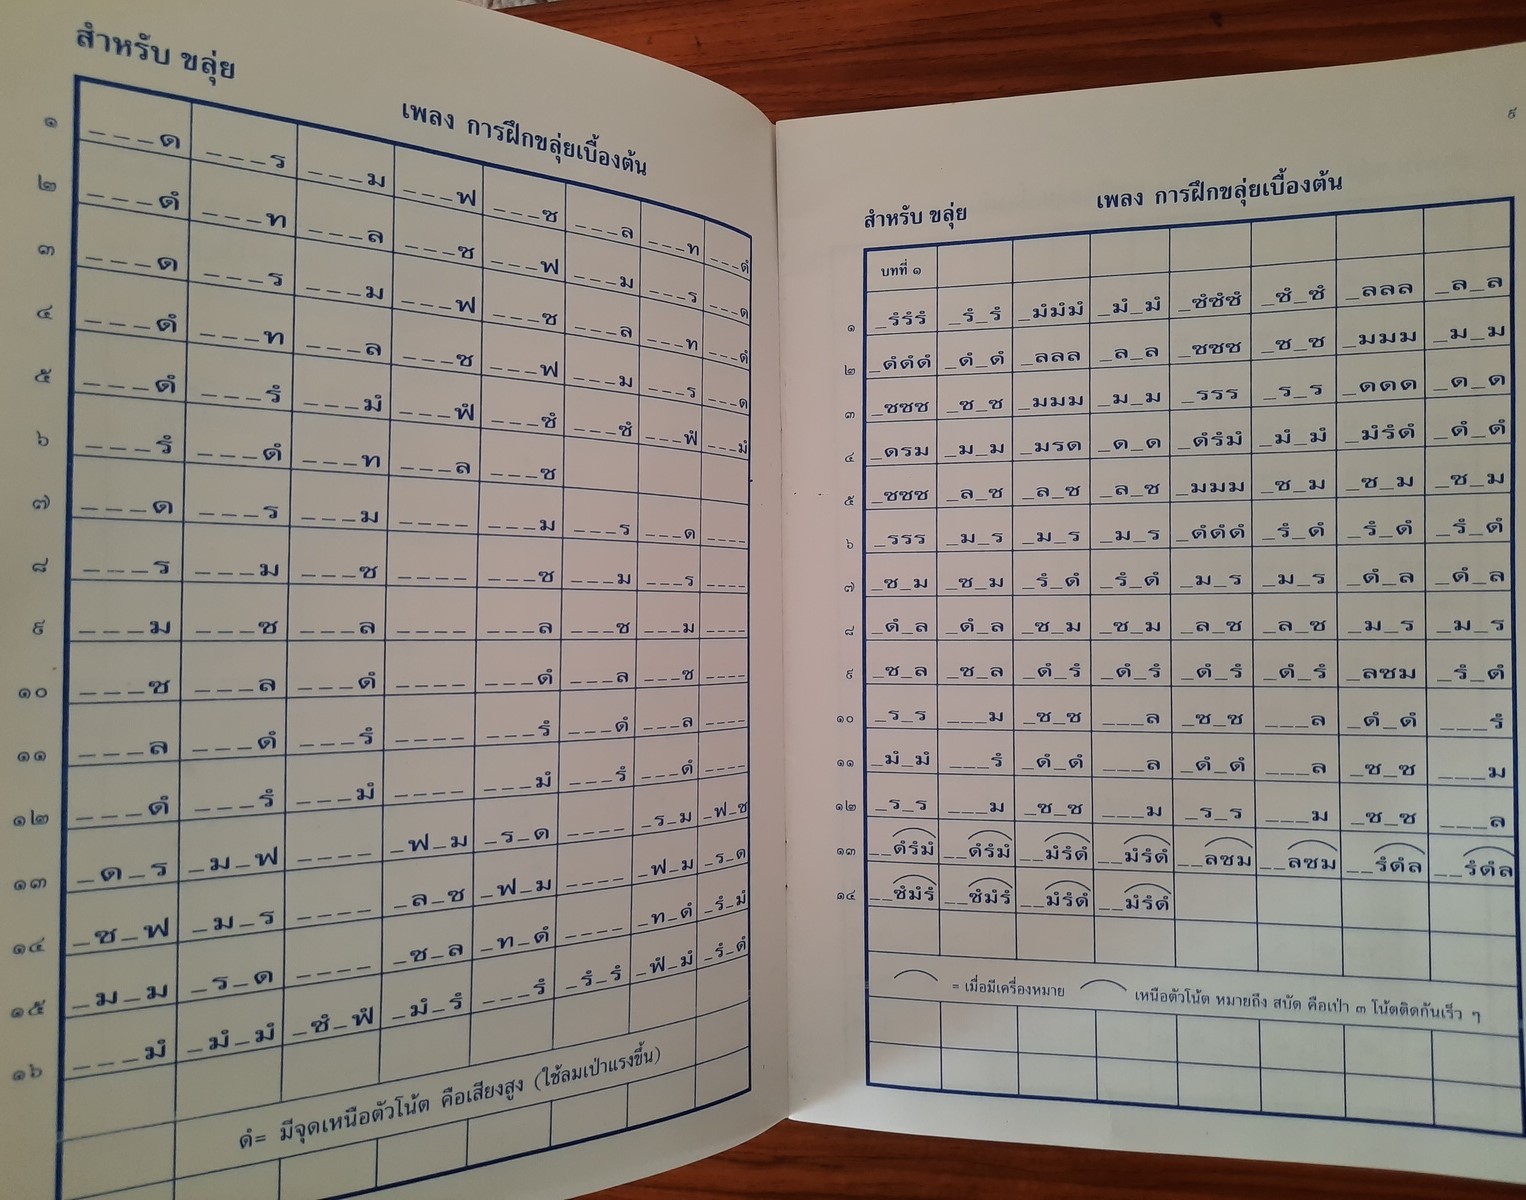 สำหรับ ขลุ่ย
เพลง การฝึกขลุ่ยเบื้องต้น
๑ _ _ _ด _ _ _ร _ _ _ม _ _ _ฟ _ _ _ซ _ _ _ล _ _ _ท _ _ _ดํ
๒ _ _ _ดํ _ _ _ท _ _ _ล _ _ _ซ _ _ _ฟ _ _ _ม _ _ _ร _ _ _ด
๓ _ _ _ด _ _ _ร _ _ _ม _ _ _ฟ _ _ _ซ _ _ _ล _ _ _ท _ _ _ดํ
๔ _ _ _ดํ _ _ _ท _ _ _ล _ _ _ซ _ _ _ฟ _ _ _ม _ _ _ร _ _ _ด
๕ _ _ _ดํ _ _ _รํ _ _ _มํ _ _ _ฟํ _ _ _ซํ _ _ _ซํ _ _ _ฟํ _ _ _มํ
๖ _ _ _รํ _ _ _ดํ _ _ _ท _ _ _ล _ _ _ซ
๗ _ _ _ด _ _ _ร _ _ _ม _ _ _ _ _ _ _ม _ _ _ร _ _ _ด _ _ _ _
๘ _ _ _ร _ _ _ม _ _ _ซ _ _ _ _ _ _ _ซ _ _ _ม _ _ _ร _ _ _ _
๙ _ _ _ม _ _ _ซ _ _ _ล _ _ _ _ _ _ _ล _ _ _ซ _ _ _ม _ _ _ _
๑๐ _ _ _ซ _ _ _ล _ _ _ดํ _ _ _ _ _ _ _ดํ _ _ _ล _ _ _ซ _ _ _ _
๑๑ _ _ _ล _ _ _ดํ _ _ _รํ _ _ _ _ _ _ _รํ _ _ _ดํ _ _ _ล _ _ _ _
๑๒ _ _ _ดํ _ _ _รํ _ _ _มํ _ _ _ _ _ _ _มํ _ _ _รํ _ _ _ดํ _ _ _ _
๑๓ _ด_ร _ม_ฟ _ _ _ _ _ฟ_ม _ร_ด _ _ _ _ _ร_ม _ฟ_ซ
๑๔ _ซ_ฟ _ม_ร _ _ _ _ _ล_ซ _ฟ_ม _ _ _ _ _ฟ_ม _ร_ด
๑๕ _ม_ม _ร_ด _ _ _ _ _ซ_ล _ท_ดํ _ _ _ _ _ท_ดํ _รํ_มํ
๑๖ _ _ _มํ _มํ_มํ _ซํ_ฟํ _มํ_รํ _ _ _รํ _รํ_รํ _ฟํ_มํ _รํ_ดํ
ดํ= มีจุดเหนือตัวโน้ต คือเสียงสูง (ใช้ลมเป่าแรงขึ้น)
๙
สำหรับ ขลุ่ย
เพลง การฝึกขลุ่ยเบื้องต้น
บทที่ ๑
๑ _รํรํรํ _รํ_รํ _มํมํมํ _มํ_มํ _ซํซํซํ _ซํ_ซํ _ลลล _ล_ล
๒ _ดํดํดํ _ดํ_ดํ _ลลล _ล_ล _ซซซ _ซ_ซ _มมม _ม_ม
๓ _ซซซ _ซ_ซ _มมม _ม_ม _รรร _ร_ร _ดดด _ด_ด
๔ _ดรม _ม_ม _มรด _ด_ด _ดํรํมํ _มํ_มํ _มํรํดํ _ดํ_ดํ
๕ _ซซซ _ล_ซ _ล_ซ _ล_ซ _มมม _ซ_ม _ซ_ม _ซ_ม
๖ _รรร _ม_ร _ม_ร _ม_ร _ดํดํดํ _รํ_ดํ _รํ_ดํ _รํ_ดํ
๗ _ซ_ม _ซ_ม _รํ_ดํ _รํ_ดํ _ม_ร _ม_ร _ดํ_ล _ดํ_ล
๘ _ดํ_ล _ดํ_ล _ซ_ม _ซ_ม _ล_ซ _ล_ซ _ม_ร _ม_ร
๙ _ซ_ล _ซ_ล _ดํ_รํ _ดํ_รํ _ดํ_รํ _ดํ_รํ _ลซม _รํ_ดํ
๑๐ _ร_ร _ _ _ม _ซ_ซ _ _ _ล _ซ_ซ _ _ _ล _ดํ_ดํ _ _ _รํ
๑๑ _มํ_มํ _ _ _รํ _ดํ_ดํ _ _ _ล _ดํ_ดํ _ _ _ล _ซ_ซ _ _ _ม
๑๒ _ร_ร _ _ _ม _ซ_ซ _ _ _ม _ร_ร _ _ _ม _ซ_ซ _ _ _ล
๑๓ _ _ดํรํมํ _ _ดํรํมํ _ _มํรํดํ _ _มํรํดํ _ _ลซม _ _ลซม _ _รํดํล _ _รํดํล
๑๔ _ _ซํมํรํ _ _ซํมํรํ _ _มํรํดํ _ _มํรํดํ
= เมื่อมีเครื่องหมาย เหนือตัวโน้ต หมายถึง สบัด คือเป่า ๓ โน้ตติดกันเร็ว ๆ